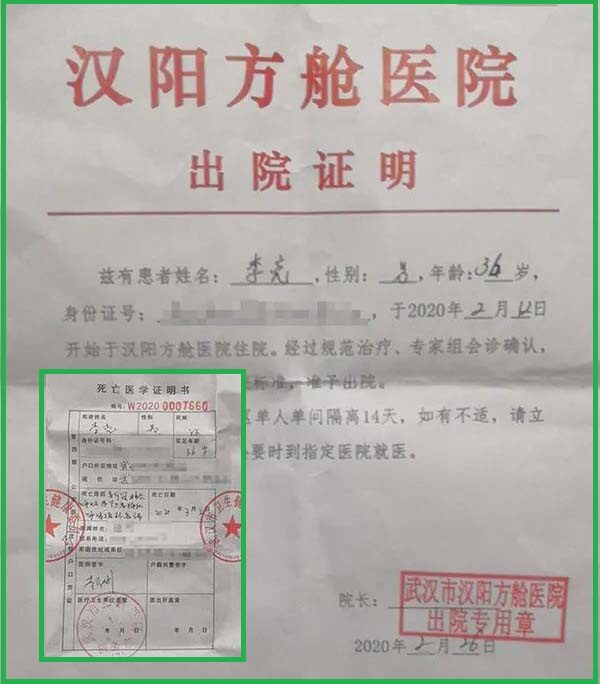 汉阳方舱医院
出院证明
兹有患者姓名：李亮，性别：男，年龄：36岁，
身份证号： ，于2020年2月12日
开始于汉阳方舱医院住院。经过规范治疗、专家组会诊确认，
标准，准予出院。
区单人单间隔离14天，如有不适，请立
要时到指定医院就医。
院长：
武汉市汉阳方舱医院
出院专用章
2020年2月26日
死亡医学证明书
编号：W2020 0007660
死者姓名 性别 民族
李亮 男 汉
身份证号码 实足年龄
36岁
户口所在地址
现住址
死亡原因 死亡日期
2020年3月2
联系电话
家庭住址或单位
医师签字 户籍民警签字
医疗卫生单位盖章 派出所盖章
年 月 日 年 月 日